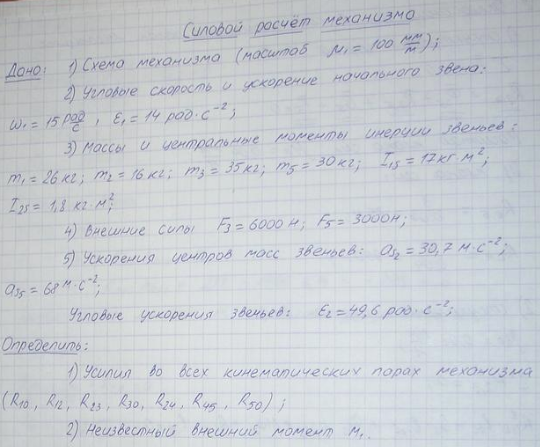 Силовой расчёт механизма
Дано: 1) Схема механизма (масштаб μ₁ = 100 мм/м);
2) Угловые скорость и ускорение начального звена:
ω₁ = 15 рад/с, ε₁ = 14 рад·с⁻²;
3) Массы и центральные моменты инерции звеньев:
m₁ = 26 кг; m₂ = 16 кг; m₃ = 35 кг; m₅ = 30 кг; I₁ₛ = 17 кг·м²;
I₂ₛ = 1,8 кг·м²;
4) Внешние силы F₃ = 6000 Н; F₅ = 3000 Н;
5) Ускорения центров масс звеньев: aₛ₂ = 30,7 м·с⁻²;
= 68 м·с⁻²;
Угловые ускорения звеньев: ε₂ = 49,6 рад·с⁻²;
Определить:
1) Усилия во всех кинематических парах механизма
(R₁₀, R₁₂, R₂₃, R₃₀, R₂₄, R₄₅, R₅₀);
2) Неизвестный внешний момент M₁.